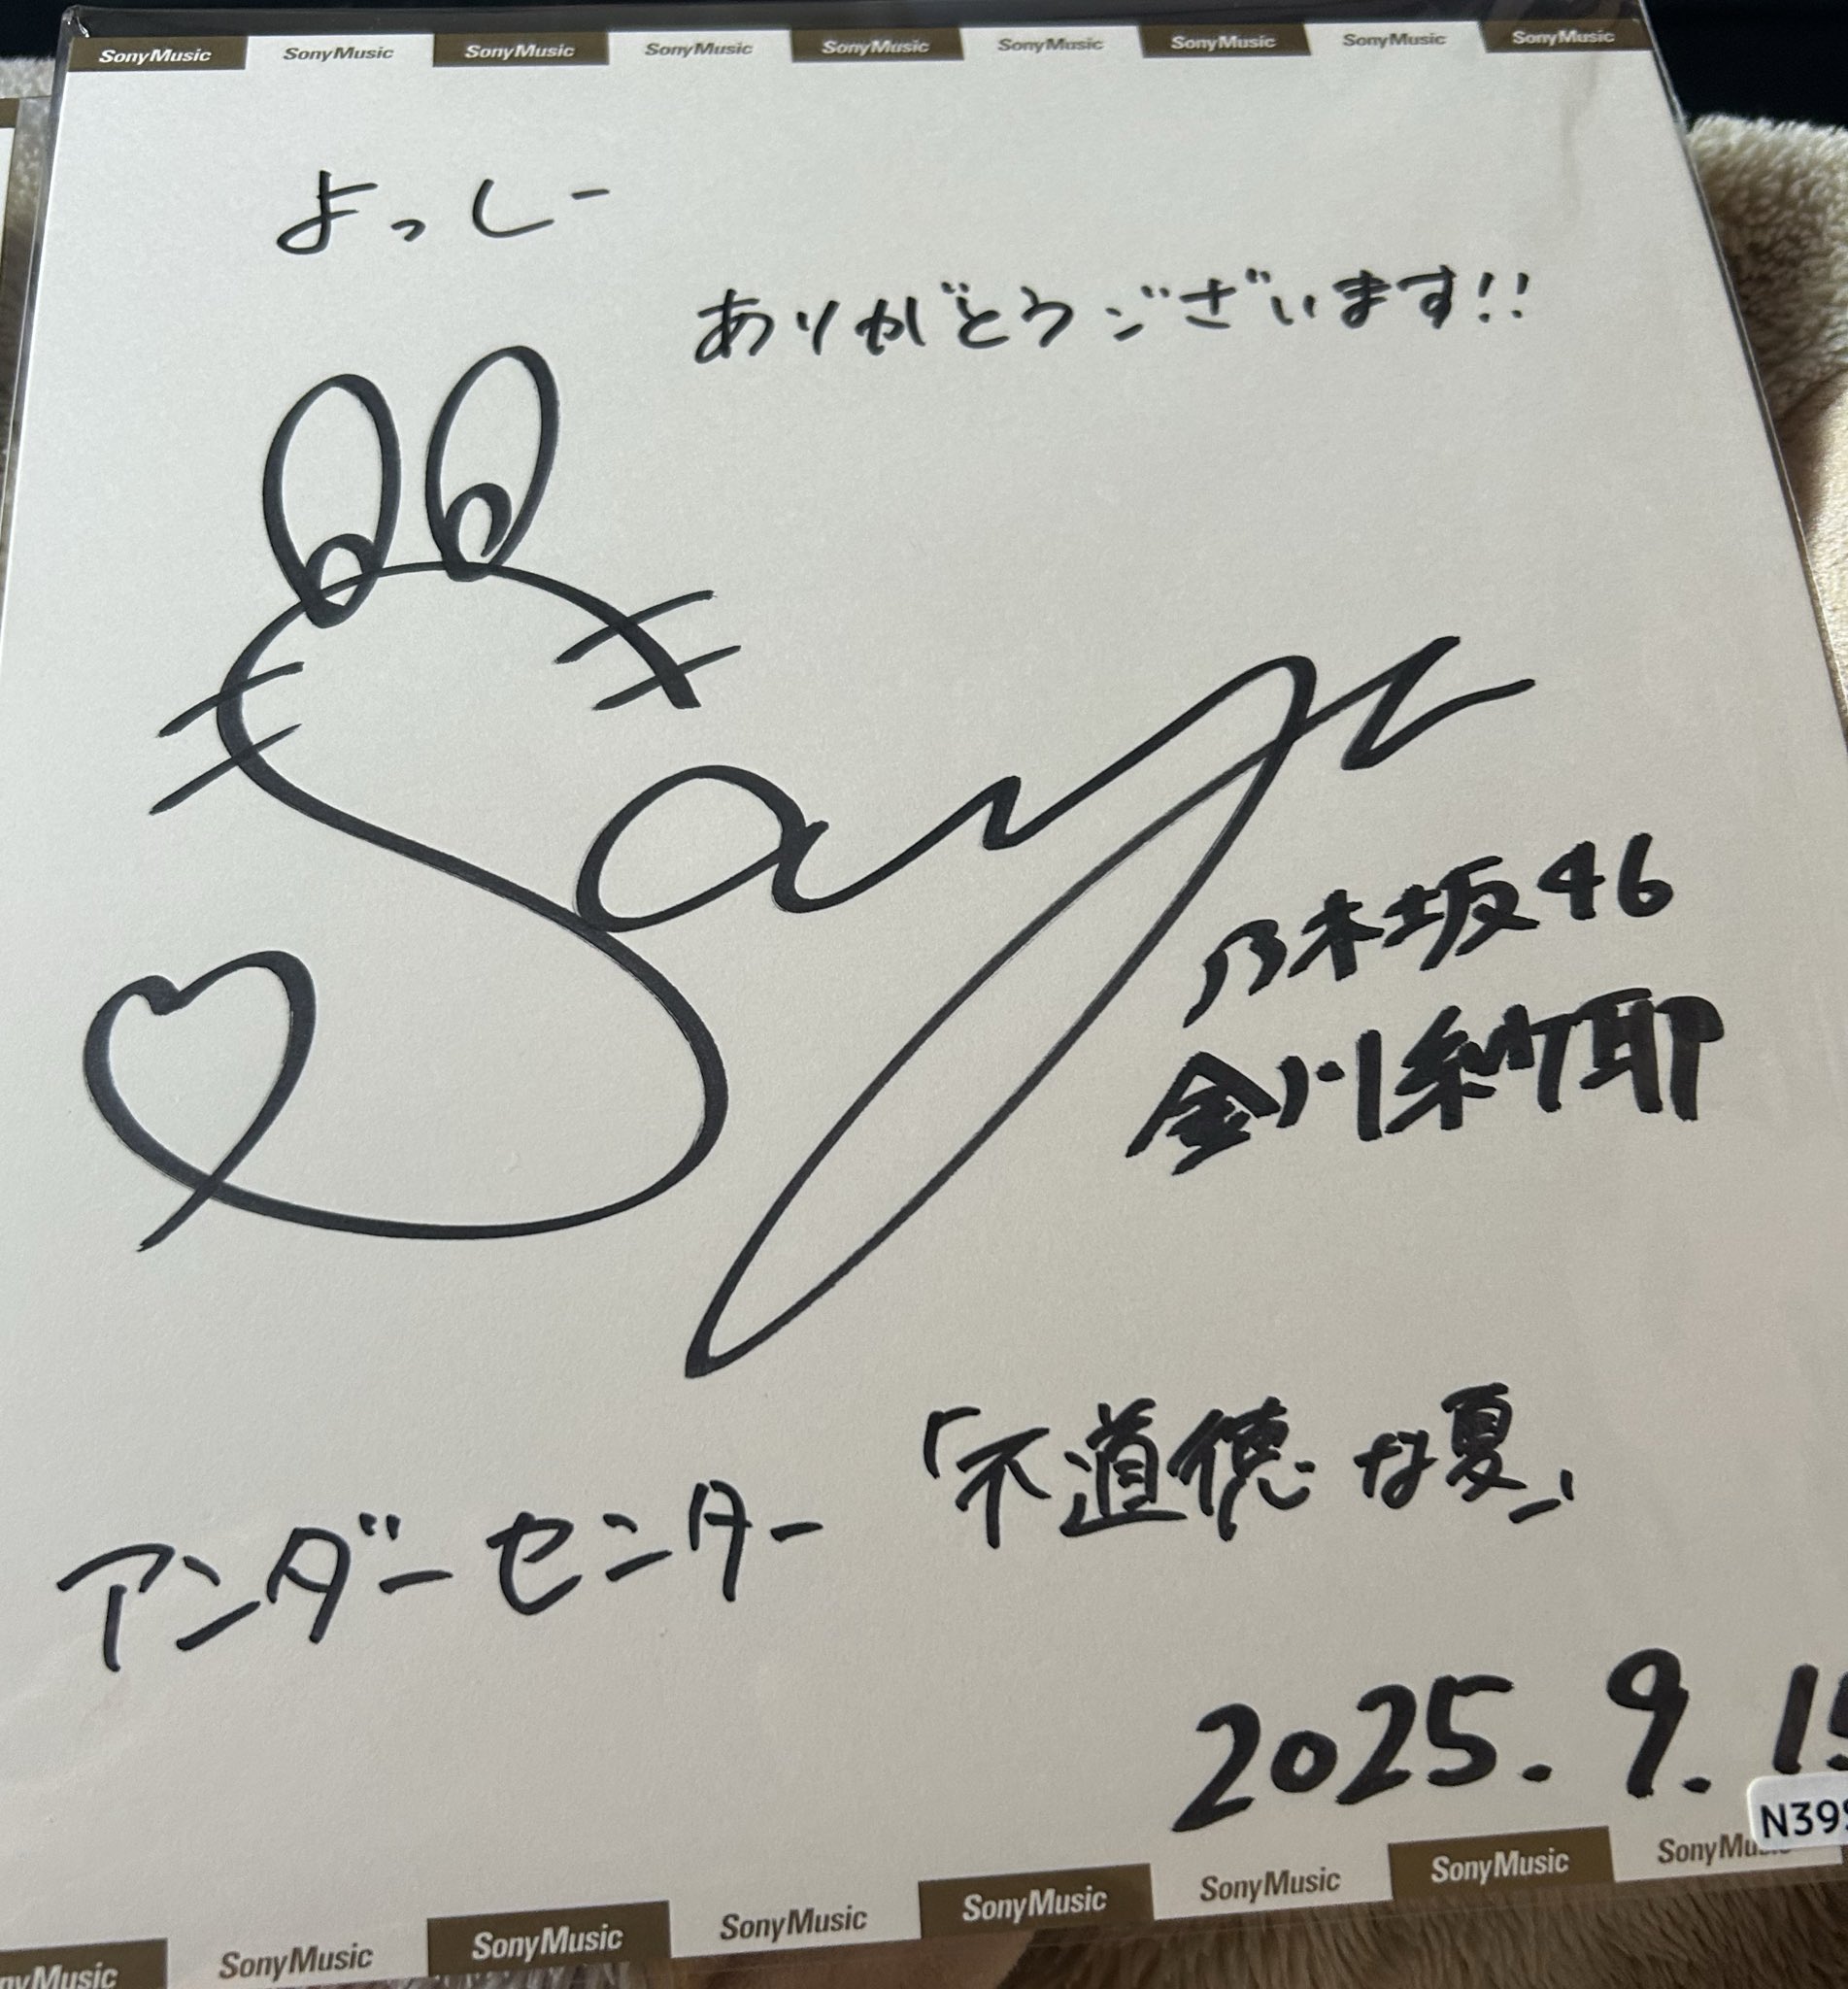 SonyMusic SonyMusic SonyMusic SonyMusic SonyMusic SonyMusic SonyMusic SonyMusic SonyMusic
よっしー
ありがとうございます!!
Saya
乃木坂46
金川紗耶
「不道徳な夏」
アンダーセンター
2025.9.15
N39
SonyMusic SonyMusic SonyMusic SonyMusic SonyMusic SonyMusic